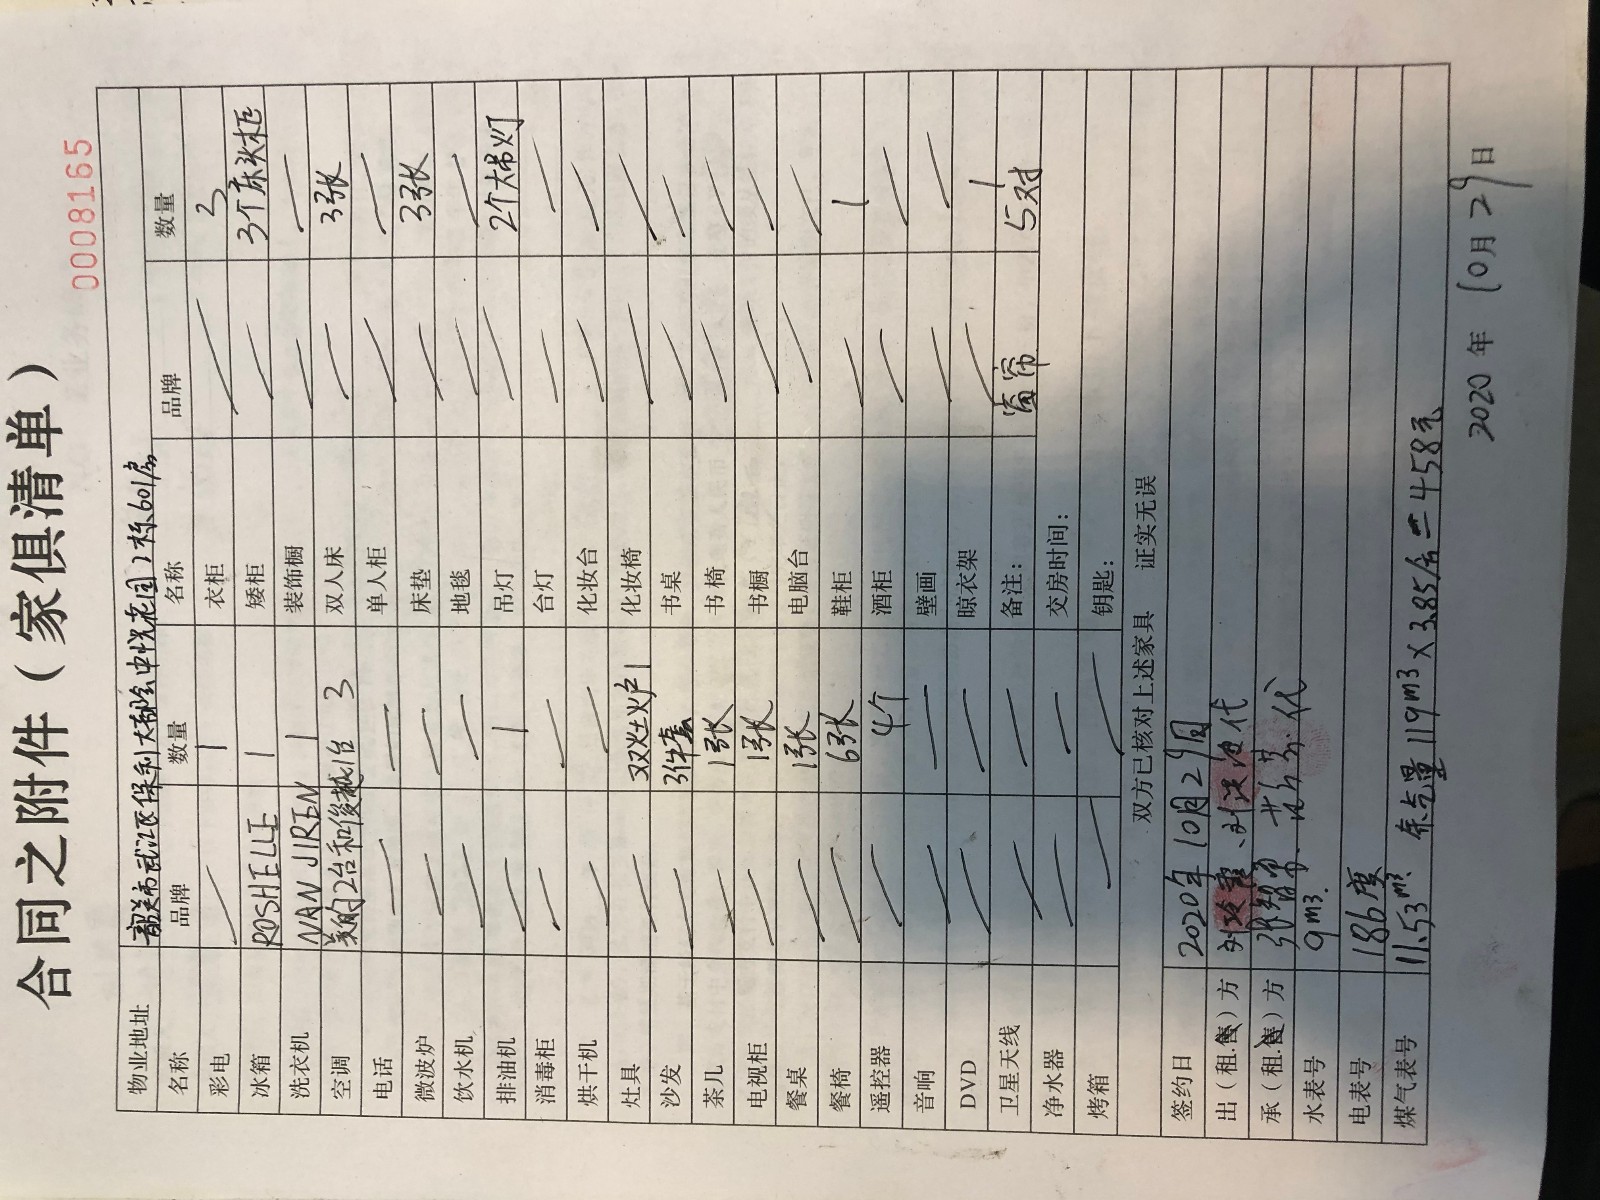 合同之附件（家俱清单）
0008165
物业地址 韶关市武江区保利大都会中悦花园2栋601房
名称 品牌 数量 名称 品牌 数量
彩电 / 1 衣柜 / 3
冰箱 ROSHELLE 1 矮柜 / 3个床头柜
洗衣机 NAN JIREN 1 装饰橱 / /
空调 美的2台和俊越1台 3 双人床 / 3张
电话 / / 单人柜 / /
微波炉 / / 床垫 / 3张
饮水机 / / 地毯 / /
排油机 / 1 吊灯 / 2个大吊灯
消毒柜 / / 台灯 / /
烘干机 / / 化妆台 / /
灶具 / 双灶火炉1 化妆椅 / /
沙发 / 3件套 书桌 / /
茶几 / 1张 书椅 / /
电视柜 / 1张 书橱 / /
餐桌 / 1张 电脑台 / /
餐椅 / 6张 鞋柜 / 1
遥控器 / 4个 酒柜 / /
音响 / / 壁画 / /
DVD / / 晾衣架 / 1
卫星天线 / / 备注： 窗帘 5对
净水器 / / 交房时间：
烤箱 / / 钥匙：
双方已核对上述家具 证实无误
签约日 2020年10月29日
出（租.售）方 代
承（租.售）方 代
水表号 9m³.
电表号 186度
煤气表号 11.53m³ 余气量119m³×3.85/立=458元
2020年10月29日